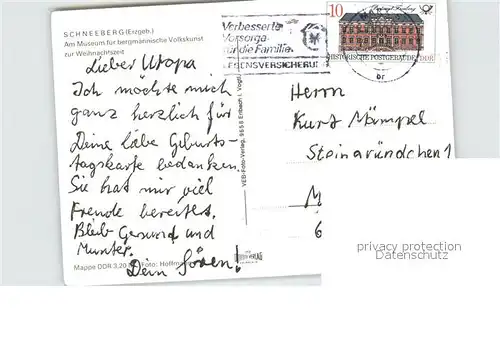 SCHNEEBERG (Erzgeb.)
Am Museum für bergmännische Volkskunst
zur Weihnachtszeit
Lieber Utopa!
Ich möchte mich
ganz herzlich für
Deine liebe Geburts-
tagskarte bedanken.
Sie hat mir viel
Freude bereitet.
Bleib Gesund und
Munter.
Dein Sören!
Mappe DDR 3,20 Foto: Hoffmann
VEB-Foto-Verlag, 9656 Erlbach i. Vogtl.
Verbesserte
Vorsorge
für die Familie
LEBENSVERSICHERUNG
10
HISTORISCHE POSTGEBÄUDE DDR
br
Herrn
Kurt Mämpel
Steingründchen 1
M
6
privacy protection
Datenschutz